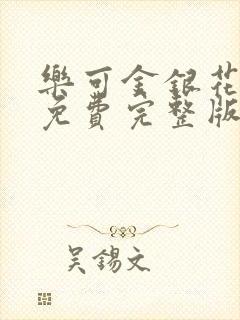 樂可金銀花
免費完整版
吳錫文